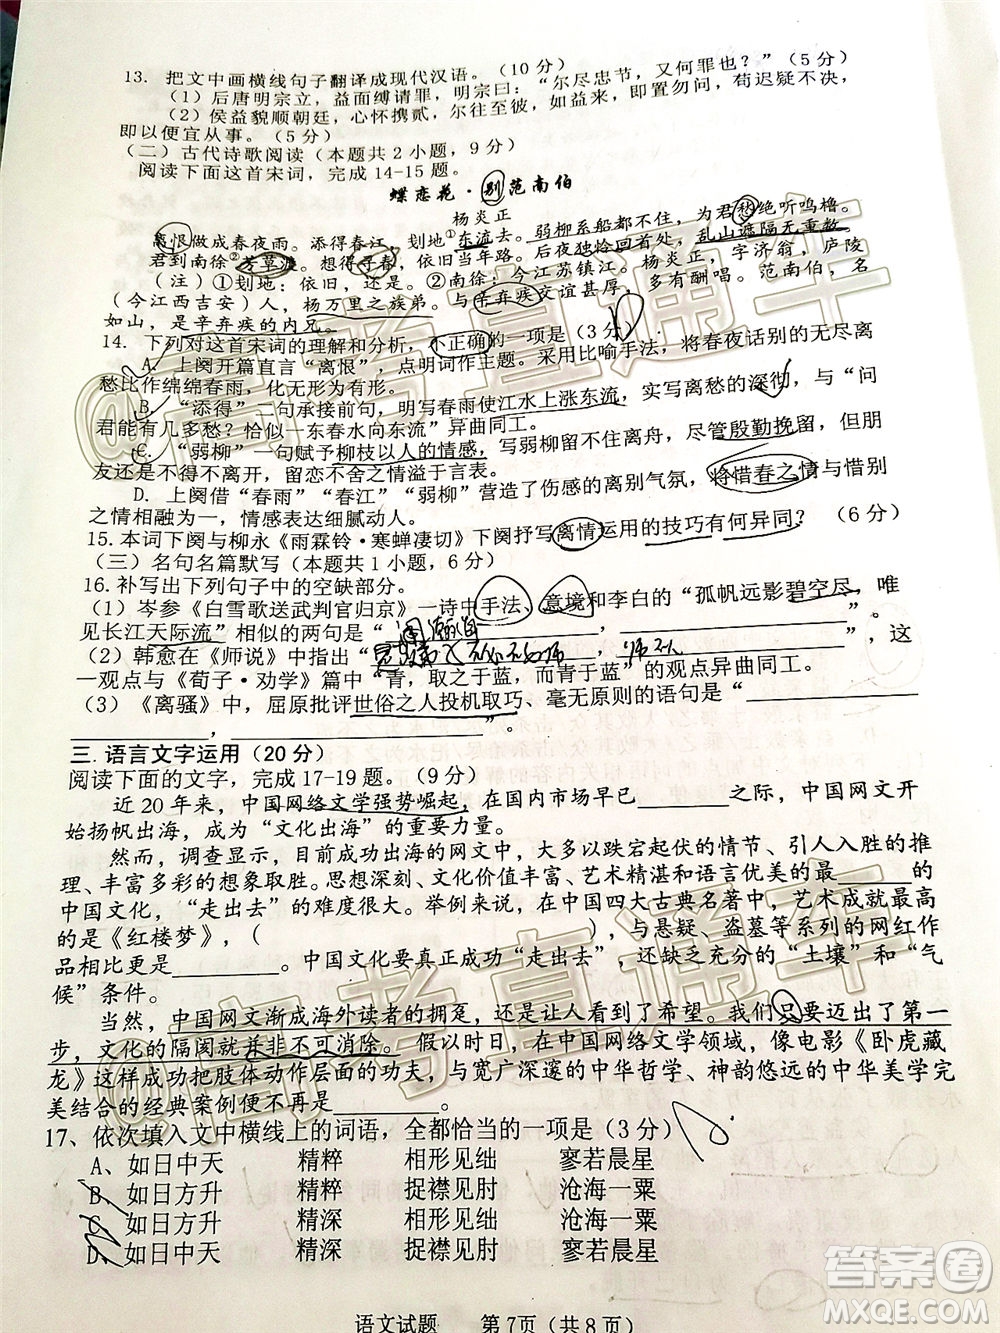 13. 把文中画横线句子翻译成现代汉语。（10 分）
（1）后唐明宗立，益面缚请罪，明宗曰：“尔尽忠节，又何罪也？”（5 分）
（2）侯益貌顺朝廷，心怀携贰，尔往至彼，如益来，即置勿问，苟迟疑不决，
即以便宜从事。（5 分）
（二）古代诗歌阅读（本题共 2 小题，9 分）
阅读下面这首宋词，完成 14-15 题。
蝶恋花·别范南伯
杨炎正
离恨做成春夜雨。添得春江，划地①东流去。弱柳系船都不住，为君愁绝听呜橹。
君到南徐②芳草渡。想得寻春，依旧当年路。后夜独怜回首处，乱山遮隔无重数。
（注）①划地：依旧，还是。②南徐：今江苏镇江。杨炎正，字济翁，庐陵
（今江西吉安）人，杨万里之族弟。与辛弃疾交谊甚厚，多有酬唱。范南伯，名
如山，是辛弃疾的内兄。
14. 下列对这首宋词的理解和分析，不正确的一项是（3 分）
A. 上阕开篇直言“离恨”，点明词作主题。采用比喻手法，将春夜话别的无尽离
愁比作绵绵春雨，化无形为有形。
B. “添得”一句承接前句，春雨使江水上涨东流，实写离愁的深彻，与“问
君能有几多愁？恰似一东春水向东流”异曲同工。
C. “弱柳”一句赋予柳枝以人的情感，写弱柳留不住离舟，尽管殷勤挽留，但朋
友还是不得不离开，留恋不舍之情溢于言表。
D. 上阕借“春雨”“春江”“弱柳”营造了伤感的离别气氛，将惜春之情与惜别
之情融为一体，情感表达细腻动人。
15. 本词下阕与柳永《雨霖铃·寒蝉凄切》下阕抒写离情运用的技巧有何异同？（6 分）
（三）名句名篇默写（本题共 1 小题，6 分）
16. 补写出下列句子中的空缺部分。
（1）岑参《白雪歌送武判官归京》一诗中手法、意境和李白的“孤帆远影碧空尽，唯
见长江天际流”相似的两句是“＿＿＿＿，＿＿＿＿”。
（2）韩愈在《师说》中指出“＿＿＿＿，＿＿＿＿”，这
一观点与《荀子·劝学》篇中“青，取之于蓝，而青于蓝”的观点异曲同工。
（3）《离骚》中，屈原批评世俗之人投机取巧、毫无原则的语句是“＿＿＿＿
，＿＿＿＿”。
三. 语言文字运用（20 分）
阅读下面的文字，完成 17-19 题。（9 分）
近 20 年来，中国网络文学强势崛起，在国内市场早已＿＿＿＿之际，中国网文开
始扬帆出海，成为“文化出海”的重要力量。
然而，调查显示，目前成功出海的网文中，大多以跌宕起伏的情节、引人入胜的推
理、丰富多彩的想象取胜。思想深刻、文化价值丰富、艺术精湛和语言优美的最＿＿＿＿的
中国文化，“走出去”的难度很大。举例来说，在中国四大古典名著中，艺术成就最高
的是《红楼梦》，（　　　　），与悬疑、盗墓等系列的网红作
品相比更是＿＿＿＿。中国文化要真正成功“走出去”，还缺乏更成熟的“土壤”和“气
候”条件。
当然，中国网文渐成海外读者的拥趸，还是让人看到了希望。我们只要迈出了第一
步，文化的隔阂就并非不可消除。假以时日，在中国网络文学领域，像电影《卧虎藏
龙》这样成功把肢体动作层面的功夫，与宽广深邃的中华哲学、神韵悠远的中华美学完
美结合的经典案例便不再是＿＿＿＿。
17、依次填入文中横线上的词语，全都恰当的一项是（3 分）
A、如日中天　精粹　相形见绌　寥若晨星
B、如日方升　精粹　捉襟见肘　沧海一粟
C、如日方升　精深　相形见绌　沧海一粟
D、如日中天　精深　捉襟见肘　寥若晨星
语文试题　第 7页（共 8 页）
@高考直通车
@高考直通车
答案圈
MXQE.COM